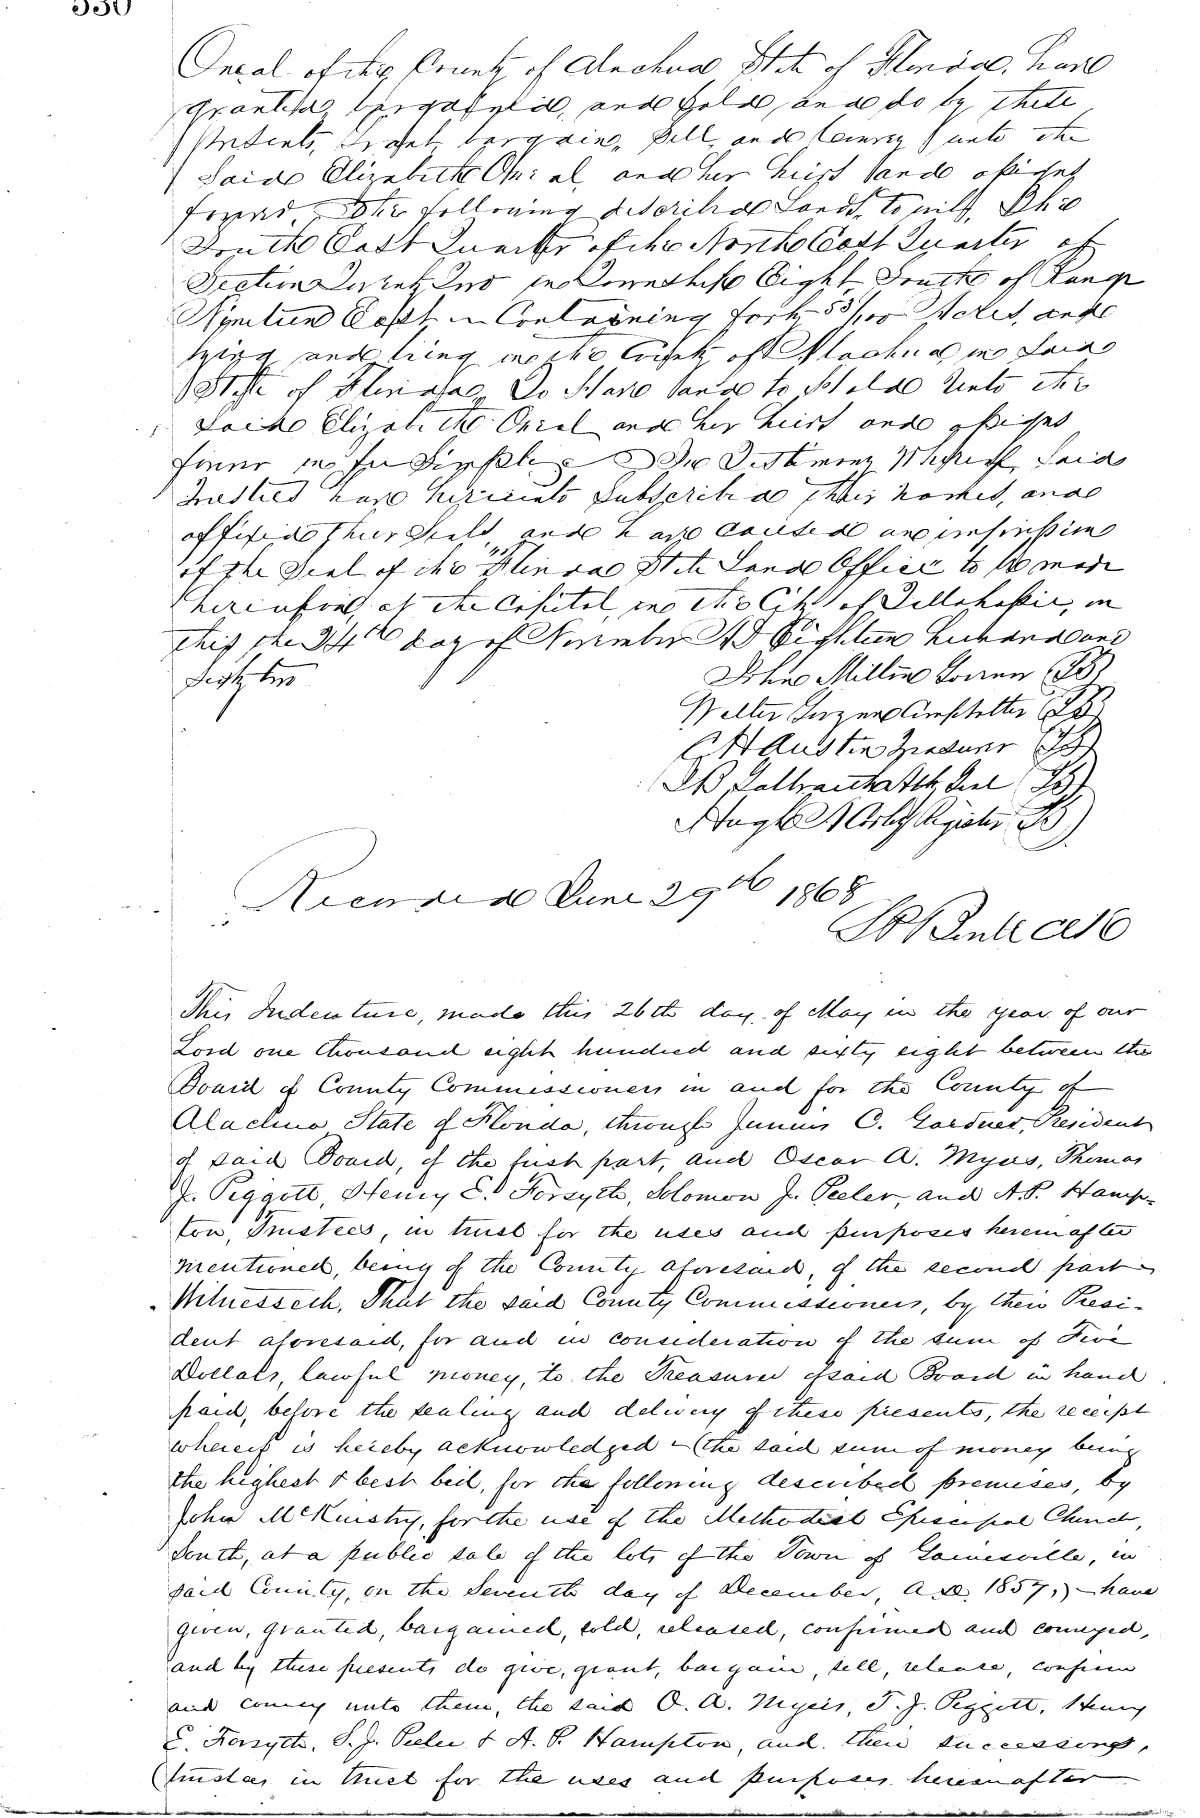 530
Oneal of the County of Alachua State of Florida, have
granted, bargained, and sold, and do by these
presents, grant, bargain, sell, and convey unto the
said Elizabeth Oneal, and her heirs and assigns
forever, the following described Lands, to wit, The
South East Quarter of the North East Quarter of
Section Twenty Two in Township Eight South of Range
Nineteen East Containing forty 53/100 Acres, and
lying and being in the County of Alachua, in said
State of Florida, To Have and to Hold unto the
said Elizabeth Oneal and her heirs and assigns
forever in fee Simple In Testimony Whereof, said
Trustees have hereunto subscribed their names, and
affixed their Seals, and have caused an impression
of the Seal of the "Florida State Land Office" to be made
hereupon, at the Capitol, in the City of Tallahassee, on
this the 24th day of November AD Eighteen hundred and
Sixty two
John Milton Governor (LS)
Walter Gwynn Comptroller (LS)
C H Austin Treasurer (LS)
J B Galbraith Atty Genl (LS)
Hugh A Corley Register (LS)
Recorded June 29th 1868
This Indenture, made this 26th day of May in the year of our
Lord one thousand eight hundred and sixty eight between the
Board of County Commissioners in and for the County of
Alachua State of Florida, through Junius C. Gardner, President
of said Board, of the first part, and Oscar A. Myers, Thomas
J. Piggott, Henry E. Forsyth, Solomon J. Peeler, and A. P. Hamp-
ton, Trustees, in trust for the uses and purposes hereinafter
mentioned, being of the County aforesaid, of the second part
Witnesseth, That the said County Commissioners, by their Presi-
dent aforesaid, for and in consideration of the sum of Five
Dollars, lawful money, to the Treasurer of said Board in hand
paid, before the sealing and delivery of these presents, the receipt
whereof is hereby acknowledged - (the said sum of money being
the highest & best bid, for the following described premises, by
John McKinstry, for the use of the Methodist Episcopal Church,
South, at a public sale of the lots of the Town of Gainesville, in
said County, on the Seventh day of December, A.D. 1857,) - have
given, granted, bargained, sold, released, confirmed and conveyed,
and by these presents do give, grant, bargain, sell, release, confirm
and convey unto them, the said O. A. Myers, T. J. Piggott, Henry
E. Forsyth, S. J. Peeler & A. P. Hampton, and their successors,
(trustees in trust for the uses and purposes hereinafter